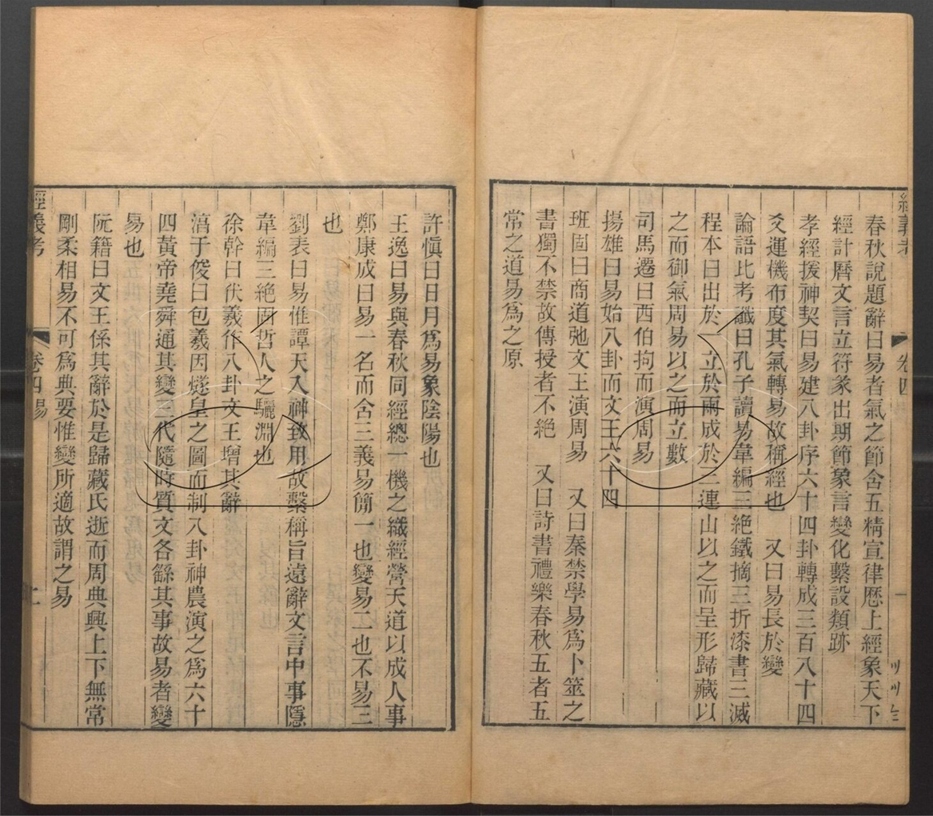 春秋說題辭曰易者氣之節含五精宣律厯上經象天下
經計曆文言立符彖出期節象言變化繫設類跡
孝經援神契曰易建八卦序六十四卦轉成三百八十四
爻運機布度其氣轉易故稱經也 又曰易長於變
論語比考讖曰孔子讀易韋編三絶鐵摘三折漆書三滅
程本曰出於一立於兩成於三連山以之而呈形歸藏以
之而御氣周易以之而立數
司馬遷曰西伯拘而演周易
揚雄曰易始八卦而文王六十四
班固曰商道弛文王演周易 又曰秦禁學易爲卜筮之
書獨不禁故傳授者不絶 又曰詩書禮樂春秋五者五
常之道易爲之原
許愼曰日月爲易象陰陽也
王逸曰易與春秋同經總一機之織經營天道以成人事
鄭康成曰易一名而含三義易簡一也變易二也不易三
也
劉表曰易惟譚天入神致用故繫稱旨遠辭文言中事隱
韋編三絶固哲人之驪淵也
徐幹曰伏羲作八卦文王增其辭
淳于俊曰包羲因燧皇之圖而制八卦神農演之爲六十
四黃帝堯舜通其變三代隨時質文各繇其事故易者變
易也
阮籍曰文王係其辭於是歸藏氏逝而周典興上下無常
剛柔相易不可爲典要惟變所適故謂之易
經義考 卷四 易 二